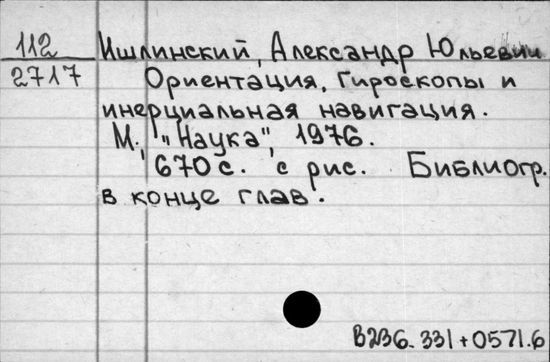 112
2717
Ишлинский, Александр Юльевич
Ориентация, гироскопы и
инерциальная навигация.
М., "Наука", 1976.
670 с. с рис. Библиогр.
в конце глав.
В236.331+0571.6